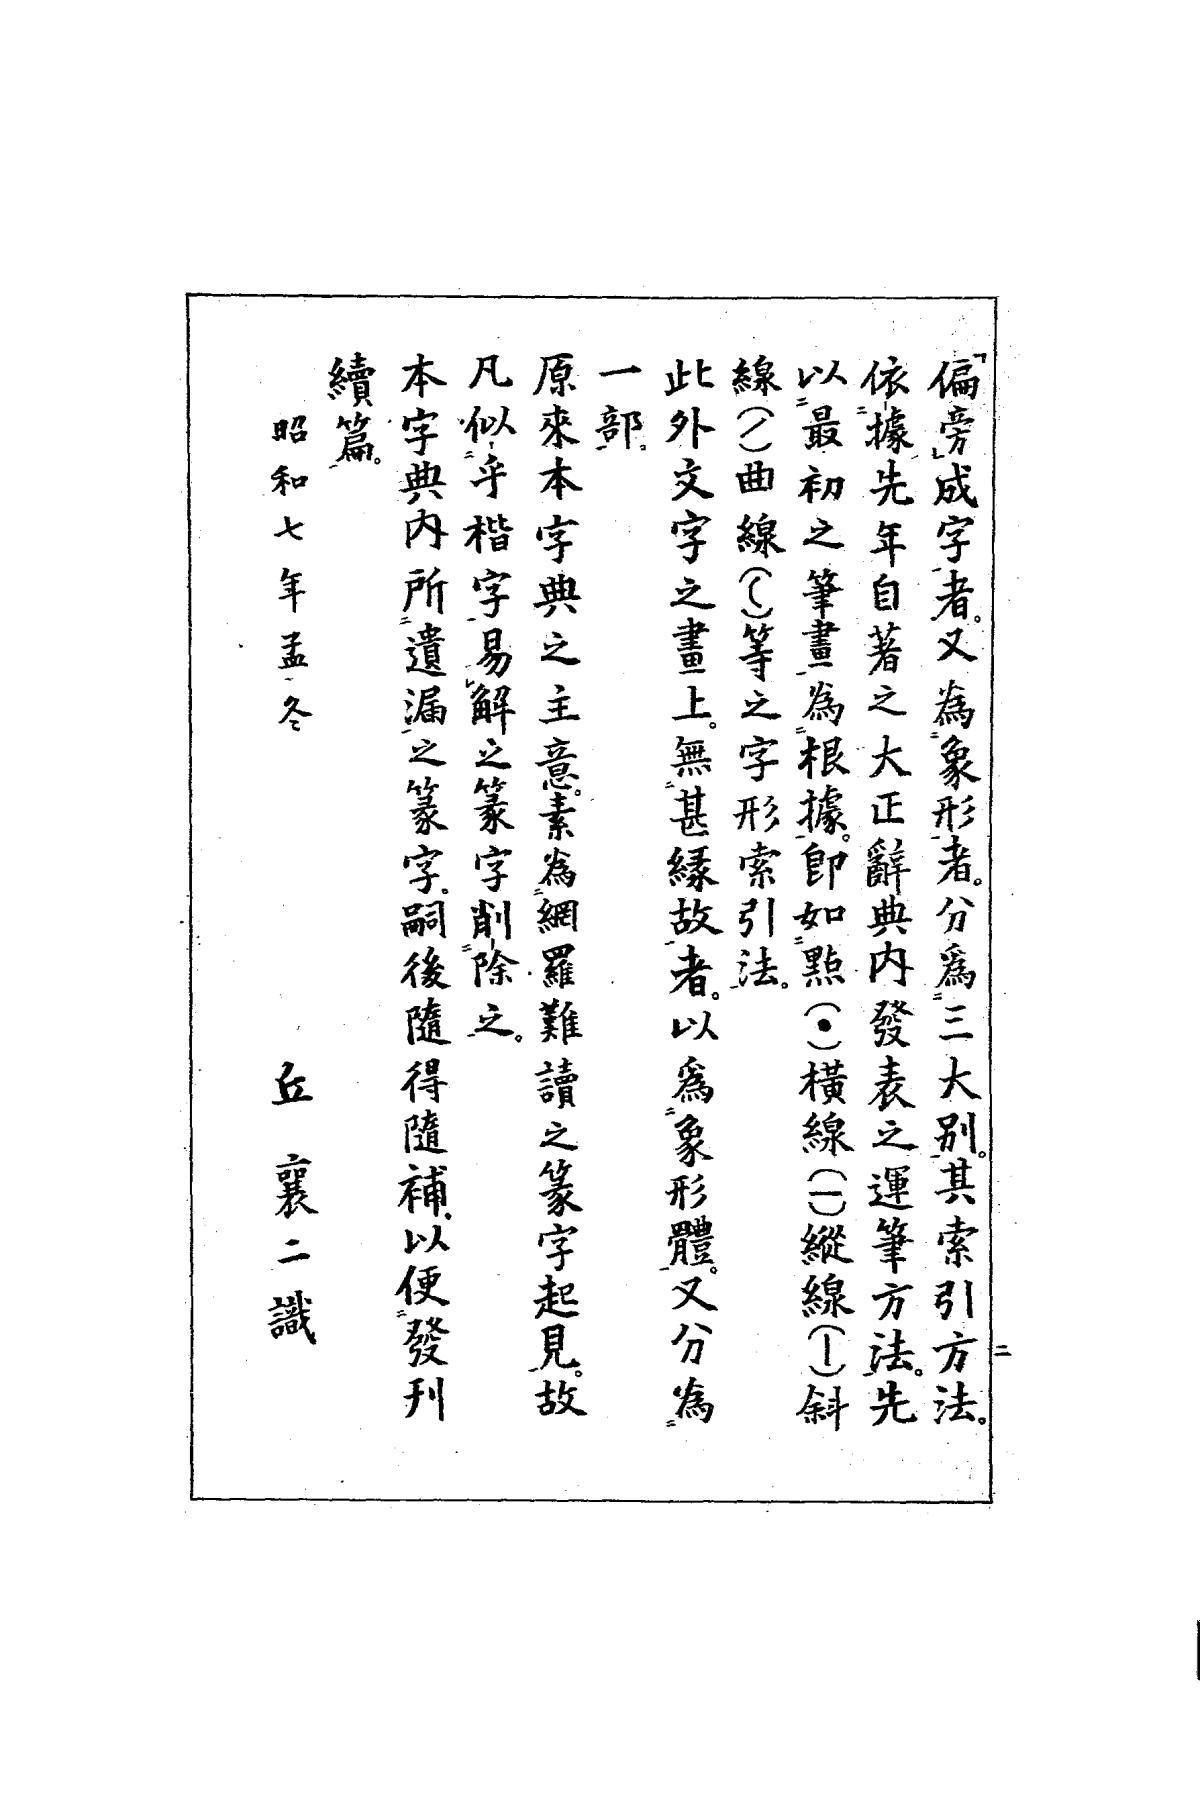 「偏旁」成字者。又為象形者。分爲三大別。其索引方法。
依據先年自著之大正辭典內發表之運筆方法。先
以最初之筆畫為根據。卽如點（•）橫線（一）縱線（丨）斜
線（／）曲線（㇂）等之字形索引法。
此外文字之畫上。無甚緣故者。以爲象形體。又分為
一部。
原來本字典之主意。素為網羅難讀之篆字起見。故
凡似乎楷字易解之篆字削除之。
本字典內所遺漏之篆字。嗣後隨得隨補。以便發刊
續篇。
昭和七年孟冬
丘襄二識
二